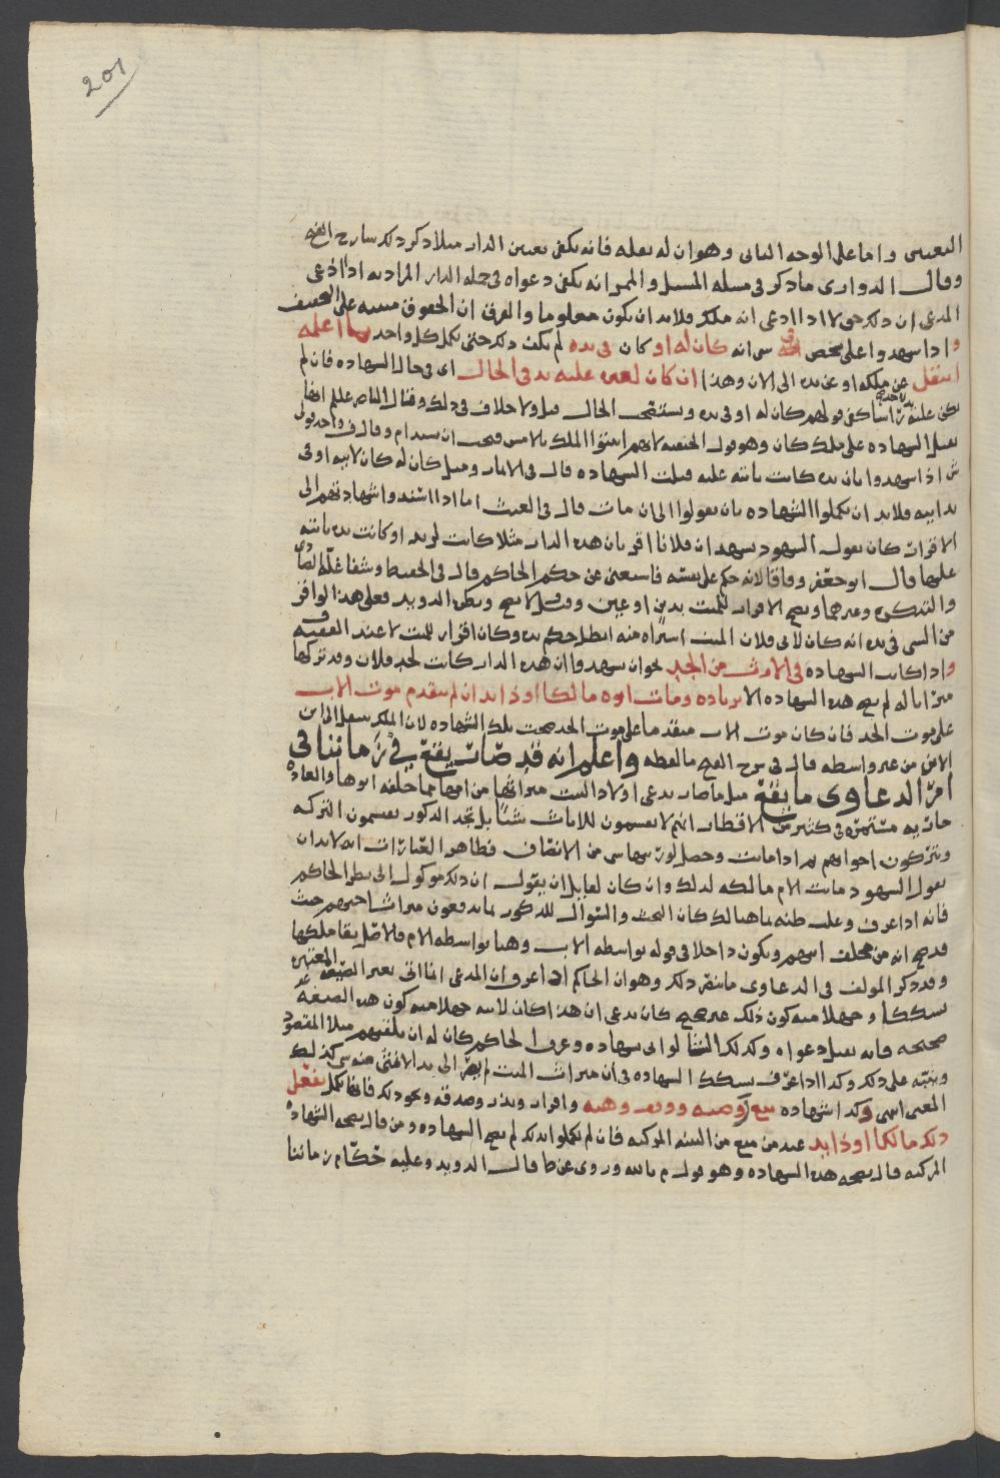 201
التعيين واما على الوجه الثاني وهو ان له نقله فانه يكفي تعيين الدار مثلا ذكر ذلك شارح الفتح
وقال الدواري ما ذكر في مسئلة المسيل والممر انه يكفي دعواه في جملة الدار المراد به اذا ادعى
المدعي ان ذلك حق لا اذا ادعى انه ملك فلا بد ان يكون معلوما والفرق ان الحقوق مبنية على التخفيف
واذا شهدوا على شخص في شي انه كان له او كان في يده لم يكف ذلك حتى يكمل كل واحد ما اعلمه
انتقل عن ملكه او عن يده الى الان وهذا ان كان لغيره عليه يد في الحال اي في حال الشهادة فان لم
يكن عليه يد كفى قولهم كان له او في يده ويستصحب الحال ولا خلاف في ذلك وقال الناصر عللم ايضا
تقبل الشهادة على ملك كان وهو قول الحنفية لانهم اثبتوا الملك بالامس فيجب ان يستدام وقال في واحد قولي
ش اذا شهدوا بان يده كانت ثابتة عليه قبلت الشهادة قال في الاثمار ومثل كان له كان لابيه او في
يد ابيه فلا بد ان يكملوا الشهادة بان يقولوا الى ان مات قال في الغيث اما اذا استند واشهادتهم الى
الاقرار كان يقول الشهود نشهد ان فلانا اقر بان هذه الدار مثلا كانت لزيد او كانت يده ثابتة
عليها قال ابو جعفر وفاقا لانه حكم على نفسه فاستغنى عن حكم الحاكم قال في الحفيظ وشفا غلة الصادي
والتذكرة وغيرهما ويصح الاقرار للميت بدين او عين وقيل لا يصح
من الشي في يده انه كان لابي فلان الميت اشتراه منه ابطل حكم يده وكان اقرار للميت لا عند الفقيه ف
واذا كانت الشهادة في الارث من الجد نحو ان شهدوا ان هذه الدار كانت لجد فلان وقد تركها
ميراثا له لم يصح هذه الشهادة الا بزيادة ومات ابوه مالكا او ذا يد ان لم يتقدم موت الاب
على موت الجد فان كان موت الاب متقدما على موت الجد صحت تلك الشهادة لان الملك ينتقل الى ابن
الابن من غير واسطة قال في شرح الفتح ما لفظه واعلم انه قد صار يقع في زماننا في
امر الدعاوى ما يقع مثل ما صار يدعي اولاد البنت ميراثها من ابيها مما خلفه ابوها والعادة
جارية مستمرة في كثير من الاقطار انهم لا يقسمون للاناث شيئا بل تجد الذكور يقسمون التركة
ويتركون اخواتهم ثم اذا ماتت وحصل لورثتها شي من الانصاف فظاهر العبارات انه لا بد ان
يقول الشهود ماتت الام مالكة لذلك وان كان لقابل ان يقول ان ذلك موكول الى نظر الحاكم
فانه اذا عرف وغلب ظنه بما هنالك كان البحث والسوال للذكور بما يدفعون ميراث اختهم حيث
قد صح انه من مخلف ابيهم ويكون داخلا في قوله بواسطة الاب وهنا بواسطة الام فالاصل بقا ملكها
وقد ذكر المولف في الدعاوى ما ينصر ذلك وهو ان الحاكم اذا عرف ان المدعي انما اتى بغير الصيغة المعتبرة
شككا وجهلا منه كون ذلك غير صحيح كان يدعي ان هذا كان لابيه جهلا منه كون هذه الصيغة غير
صحيحة فانه تقبل دعواه وكذلك الشا لو اتى بشهادة وعرف الحاكم كان له ان يلقنهم مثلا المقصود
وينبه على ذلك وكذا اذا عرف تشكك الشهادة في ان ميراث الميت لم يصر الى يد الاخ منه شي كذلك
المعنى انتهى وكذا شهادة بيع ووصية ووقف وهبة واقرار ونذر وصدقة ونحو ذلك فانما تكمل بفعل
ذلك مالكا او ذا يد عند من منع من البينة المركبة فان لم يكملوا بذلك لم تصح الشهادة ومن قال بصحة الشهادة
المركبة قال بصحة هذه الشهادة وهو قول م بالله وروي عن ط قال الدويد وعليه حكام زماننا